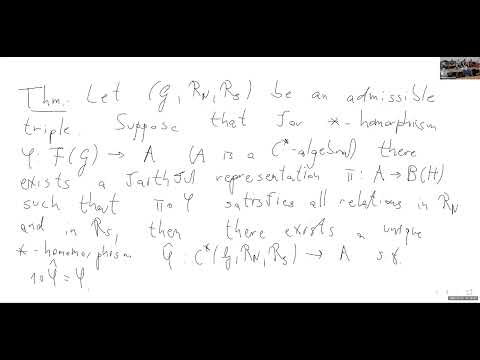 Thm. Let (G, R_N, R_S) be an admissible
triple. Suppose that for *-homorphism
φ: F(G) → A (A is a C*-algebra) there
exists a faithful representation π: A → B(H)
such that π∘φ satisfies all relations in R_N
and in R_S, then there exists a unique
*-homomorphism φ̂: C*(G, R_N, R_S) → A s.t.
φ̂ = φ.